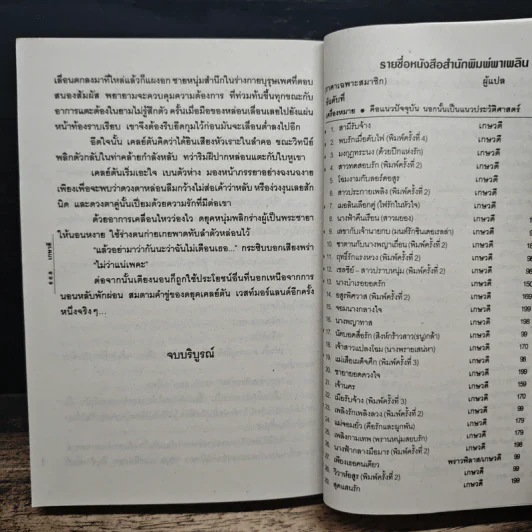 เลื่อนตกลงมาที่ไหล่แล้วก็แผงอก ชายหนุ่มสำนึกในร่างกายบุรุษเพศที่ตอบ
สนองสัมผัส พยายามจะควบคุมความต้องการ ที่ท่วมท้นขึ้นทุกขณะกับ
อาการแตะต้องในยามไม่รู้สึกตัว ครั้นเมื่อมือของหล่อนเลื่อนเลยไปยังแผ่น
หน้าท้องราบเรียบ เขาจึงต้องรีบยึดกุมไว้ก่อนมันจะเลื่อนต่ำลงไปอีก
อึดใจนั้น เคลย์ตันคิดว่าได้ยินเสียงหัวเราะในลำคอ ขณะวิทนีย์
พลิกตัวกลับในท่าคล้ายกำลังหลับ ทว่าริมฝีปากหล่อนแตะกับใบหูเขา
เคลย์ตันเริ่มเอะใจ เบนตัวห่าง มองหน้าภรรยาอย่างฉงนฉงาย
เพียงเพื่อจะพบว่าดวงตาหล่อนลืมกว้างไม่ส่อเค้าว่าหลับ หรือง่วงงุนเลยสัก
นิด และดวงตาคู่นั้นเปี่ยมด้วยความรักที่มีต่อเขา
ด้วยอาการเคลื่อนไหวว่องไว ดยุคหนุ่มพลิกร่างผู้เป็นพระชายา
ให้นอนหงาย ใช้ร่างตนก่ายเกยพาดทับลำตัวหล่อนไว้
"แล้วอย่ามาว่ากันนะว่าฉันไม่เตือนเธอ..." กระซิบบอกเสียงพร่า
"ไม่ว่าแน่เพคะ"
ต่อจากนั้นเตียงนอนก็ถูกใช้ประโยชน์อื่นที่นอกเหนือจากการ
นอนหลับพักผ่อน สมตามคำขู่ของดยุคเคลย์ตัน เวสท์มอร์แลนด์อีกครั้ง
หนึ่งจริงๆ...
จบบริบูรณ์
เกษวดี
รายชื่อหนังสือสำนักพิมพ์ผาเพลิน
ผู้แปล
เครื่องหมาย • คือแนวปัจจุบัน นอกนั้นเป็นแนวประวัติศาสตร์
1. สามีรับจ้าง เกษวดี
2. พบรักเมื่อดับไฟ (พิมพ์ครั้งที่ 4) เกษวดี
3. มงกุฎทระนง (ด้วยปีกแห่งรัก) เกษวดี
4. สาวทดสอบรัก (พิมพ์ครั้งที่ 2) เกษวดี
5. โฉมงามกับลอร์ดอสูร เกษวดี
6. สาวประกายเพลิง (พิมพ์ครั้งที่ 2) เกษวดี
7. เมอลินเลือกคู่ (ไฟรักในหัวใจ) เกษวดี
8. นางฟ้าคืนเรือน (สาวผยอง) เกษวดี
9. เกษวดี
10. ซาตานกับนางพญาเถื่อน (พิมพ์ครั้งที่ 2) เกษวดี
11. ฤทธิ์รักแรงหวง (พิมพ์ครั้งที่ 2) เกษวดี
12. เกษวดี
13. นางบำเรอยอดรัก เกษวดี
14. อสูรพิศวาส (พิมพ์ครั้งที่ 2) เกษวดี 169
15. จอมนางกลางใจ เกษวดี 199
16. นางพญาทาส เกษวดี 198
17. เกษวดี 99
18. เจ้าสาวแปลงโฉม (นางพรายเสน่หา) เกษวดี 170
19. เกษวดี 98
20. ชายายอดดวงใจ เกษวดี 199
21. เจ้านคร เกษวดี 159
22. เมียรับจ้าง (พิมพ์ครั้งที่ 3) เกษวดี 170
23. เพลิงรักเพลิงลวง (พิมพ์ครั้งที่ 2) เกษวดี 99
24. แม่จอมยั่ว (คีรักและผูกพัน) เกษวดี 179
25. เพลิงกามเทพ (พรานหนุ่มลอบรัก) เกษวดี 179
26. นางฟ้ากลางมือมาร (พิมพ์ครั้งที่ 2) เกษวดี 198
27. เพียงเธอคนเดียว พราวพิลาส/เกษวดี 99
28. วิวาห์อสูร (พิมพ์ครั้งที่ 2) เกษวดี 99
29. สุดแสนรัก เกษวดี 199